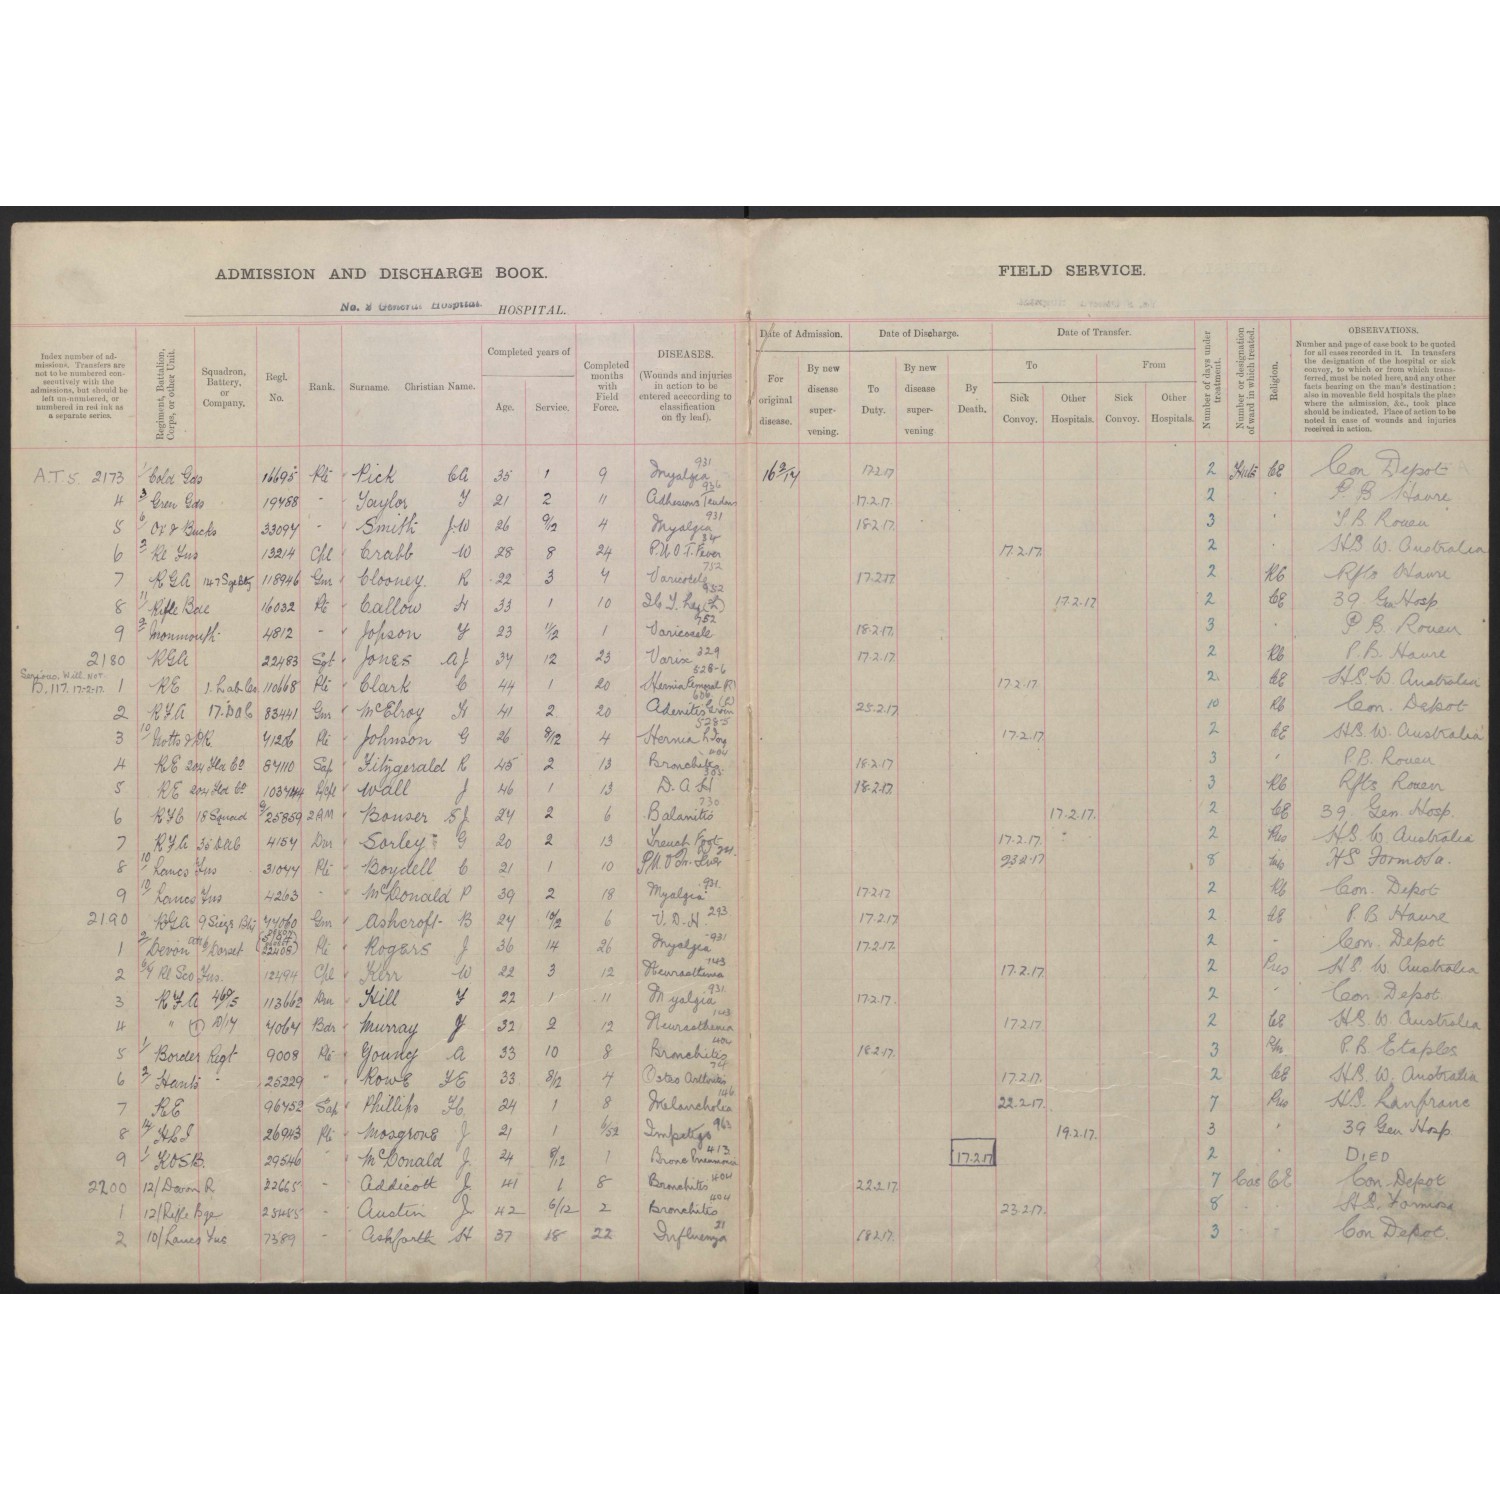 ADMISSION AND DISCHARGE BOOK.
No. 2 General Hospital HOSPITAL.
FIELD SERVICE.
Index number of admissions. Transfers are not to be numbered consecutively with the admissions, but should be left un-numbered, or numbered in red ink as a separate series.
Regiment, Battalion, Corps, or other Unit.
Squadron, Battery, or Company.
Regl. No.
Rank.
Surname. Christian Name.
Completed years of
Age.
Service.
Completed months with Field Force.
DISEASES.
(Wounds and injuries in action to be entered according to classification on fly leaf).
Date of Admission.
For original disease.
By new disease supervening.
Date of Discharge.
To Duty.
By new disease supervening
By Death.
Date of Transfer.
To
Sick Convoy.
Other Hospitals.
From
Sick Convoy.
Other Hospitals.
Number of days under treatment.
Number or designation of ward in which treated.
Religion.
OBSERVATIONS.
Number and page of case book to be quoted for all cases recorded in it. In transfers the designation of the hospital or sick convoy, to which or from which transferred, must be noted here, and any other facts bearing on the man's destination; also in moveable field hospitals the place where the admission, &c., took place should be indicated. Place of action to be noted in case of wounds and injuries received in action.
A.T 5 2173 1/ Cold Gds 16695 Pte Pick CA 35 1 9 Myalgia 931 17.2.17 2 Huts CE Con Depot
4 3/ Gren Gds 19758 - Taylor 21 2 11 Adhesions Tendons 936 17.2.17 2 P B Havre
5 6/ Ox & Bucks 33097 - Smith J.W 26 9/12 4 Myalgia 931 18.2.17 3 P.B. Rouen
6 2/ Rl Fus 13214 Cpl Crabb W 28 8 24 P.U.O T. Fever 34 17.2.17. 2 HS W. Australia
7 RGA 147 Sge Bty 118946 Gnr Clooney. R 22 3 7 Varicocele 752 17.2.17 2 RC Rfts Havre
8 11/ Rifle Bde 16032 Pte Callow H 33 1 10 I.C.T. Leg (L) 952 17.2.17 2 CE 39 Gen Hosp
9 2/ Monmouth 4812 - Jopson 23 1/12 1 Varicocele 752 18.2.17. 3 P B. Rouen
2180 RGA 22483 Sgt Jones A J 34 12 23 Varix 329 17.2.17. 2 RC P.B. Havre
Serious. Will. Not.
D. 117. 17-2-17. 1 RE 1. Lab Co 110668 Pte Clark C 44 1 20 Hernia Femoral (R) 528-6 17.2.17. 2 CE H.S. W Australia
2 RFA 17. DAC 83441 Gnr McElroy H 41 2 20 Adenitis Groin (L) 25.2.17 10 RC Con. Depot
3 10/ Notts & D.R. 71206 Pte Johnson G 26 8/12 4 Hernia R Ing 528-5 17.2.17 2 CE H.S. W. Australia
4 RE 204 Fld Co 87110 Sap Fitzgerald R 45 2 13 Bronchitis 404 18.2.17 3 P.B. Rouen
5 RE 204 Fld Co L/Cpl Wall J 46 1 13 D.A.H 18.2.17. 3 RC Rfts Rouen
6 RFC 18 Squad 25859 2AM Bonser S J 24 2 6 Balanitis 730 17.2.17. 2 CE 39 Gen. Hosp.
7 RFA 35 DAC 4157 Dvr Sorley G 20 2 13 Trench Foot 17.2.17. 2 Pres H.S. W Australia
8 10/ Lancs Fus 31077 Pte Boydell C 21 1 10 23.2.17 8 HS Formosa.
9 19/ Lancs Fus 4263 - McDonald P 39 2 18 Myalgia 931 17.2.17 2 RC Con. Depot
2190 RGA 9 Siege Bty 77060 Gnr Ashcroft B 24 10/12 6 V.D.H. 293 17.2.17 2 CE P.B Havre
1 2/ Devon att 6 Dorset (22408) Pte Rogers J 36 14 26 Myalgia 931 17.2.17. 2 - Con. Depot
2 6/7 Rl Sco Fus. 12494 Cpl Kerr W 22 3 12 Neurasthenia 143 17.2.17. 2 Pres H S. W Australia
3 RFA 46D/5 113662 Dvr Hill 22 1 11 Myalgia 931 17.2.17. 2 Con Depot
4 " D/17 7067 Bdr Murray 32 2 12 Neurasthenia 143 17.2.17 2 CE H.S. W. Australia
5 1/ Border Regt 9008 Pte Young A 33 10 8 Bronchitis 404 18.2.17. 3 P.B. Etaples
6 2/ Hants - 25229 - Rowe FE 33 8/12 4 Osteo Arthritis 74 17.2.17. 2 CE H.S. W. Australia
7 RE 96752 Sap Phillips 24 1 8 Melancholia 146 22.2.17. 7 Pres H.S. Lanfranc
8 14/ HLI 26943 Pte Mosgrove J 21 1 1/52 Impetigo 963 19.2.17. 3 39 Gen Hosp.
9 1/ KOSB. 29546 McDonald J. 24 8/12 1 Bronc Pneumonia 413 17.2.17 2 DIED
2200 12/ Devon R 22665 - Addicott J. 41 1 8 Bronchitis 404 22.2.17. 7 Cas CE Con Depot
1 12/ Rifle Bge - Austin J. 42 6/12 2 Bronchitis 404 23.2.17. 8 H.S. Formosa
2 10/ Lancs Fus 7389 - Ashforth H 37 18 22 Influenza 21 18.2.17. 3 Con Depot.